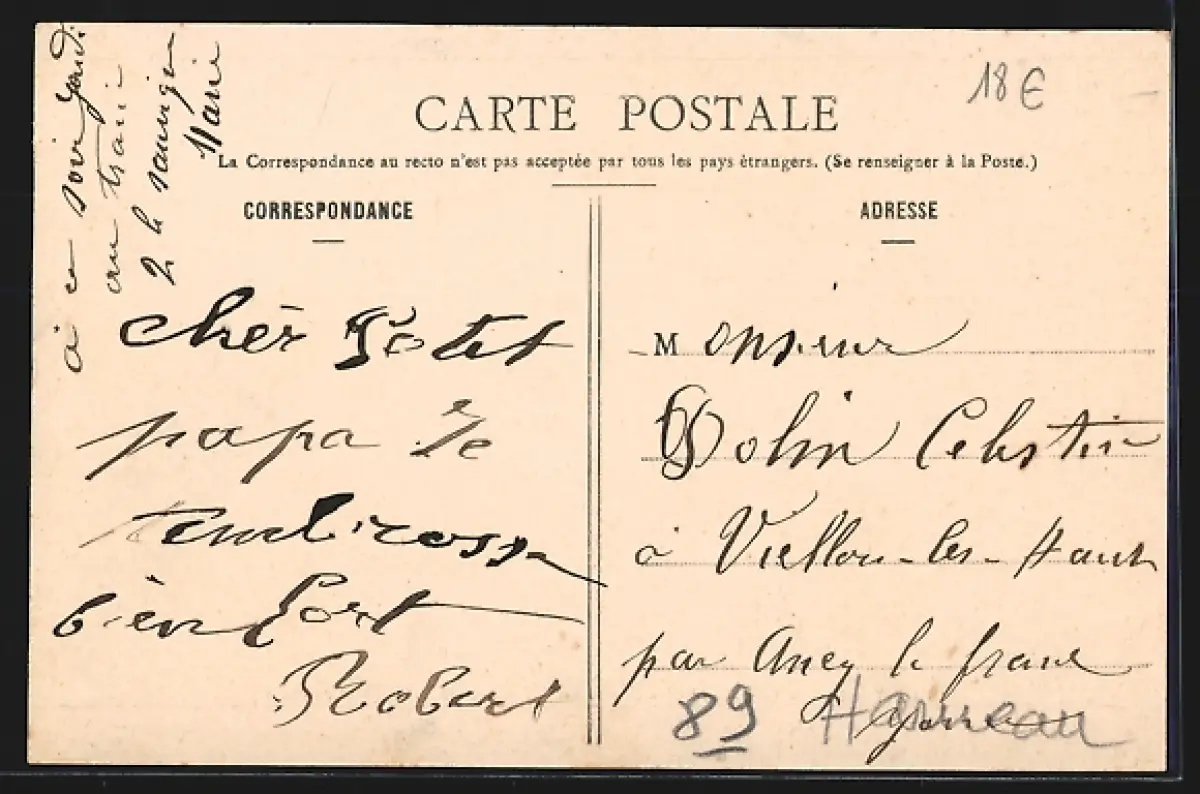 18 €
CARTE POSTALE
La Correspondance au recto n'est pas acceptée par tous les pays étrangers. (Se renseigner à la Poste.)
CORRESPONDANCE
ADRESSE
à ce soir
au train
2 h
Marie
cher Totet
papa Je
tembrasse
bien fort
Robert
Monsieur
Dolin Celestin
à Vireaux-les-Hauts
par Ancy le franc
Yonne
89